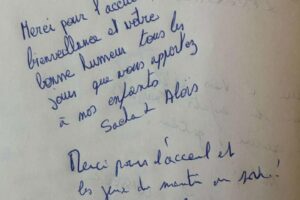 Merci pour l'accueil
bienveillance et votre
bonne humeur tous les
jours que vous apportez
à nos enfants
Sacha & Aloïs
Merci pour l'accueil et
les jeux du matin au soir!